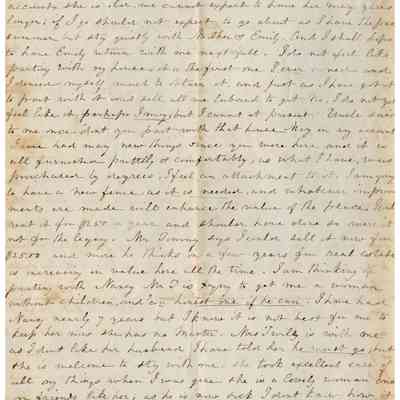 account, she is dear, we cannot expect to have her many years
longer, if I go should not expect to go about as I have the past
summer but stay quietly with Mother & Emily, and I shall hope
to have Emily return with me next fall. I do not feel like
parting with my house, it is the first one I ever owned and
I denied myself much to obtain it, and just as I have got it
to part with it and sell all we labored to get. No, I do not yet
feel like it perhaps I may, but I cannot at present. Uncle said
to me more don't you part with that house Mary on my account
I have had many new things since you were here and it is
all furnished prettily & comfortably, as what I have, was
purchased by degrees, I feel an attachment to it. I am going
to have a new fence, as it is needed, and whatever improve
ments are made will enhance the value of the place. I could
rent it for $250 a year and should have done so were it
not for the legacy. Mr Downey says I could sell it now for
$2500 and more he thinks in a few years for real estate
is increasing in value here all the time. I am thinking of
parting with Nancy Mr D is trying to get me a woman
without children, and will hire out one if he can. I have had
Nancy nearly 7 years but I know it is not best for me to
keep her now she has no master. Mrs is with me
as I dont like her husband I have told her he must go, but
she is welcome to stay with me. she took excellent care of
all my things when I was gone she is a lovely woman
our friends like her, as he is now sick I dont know how it